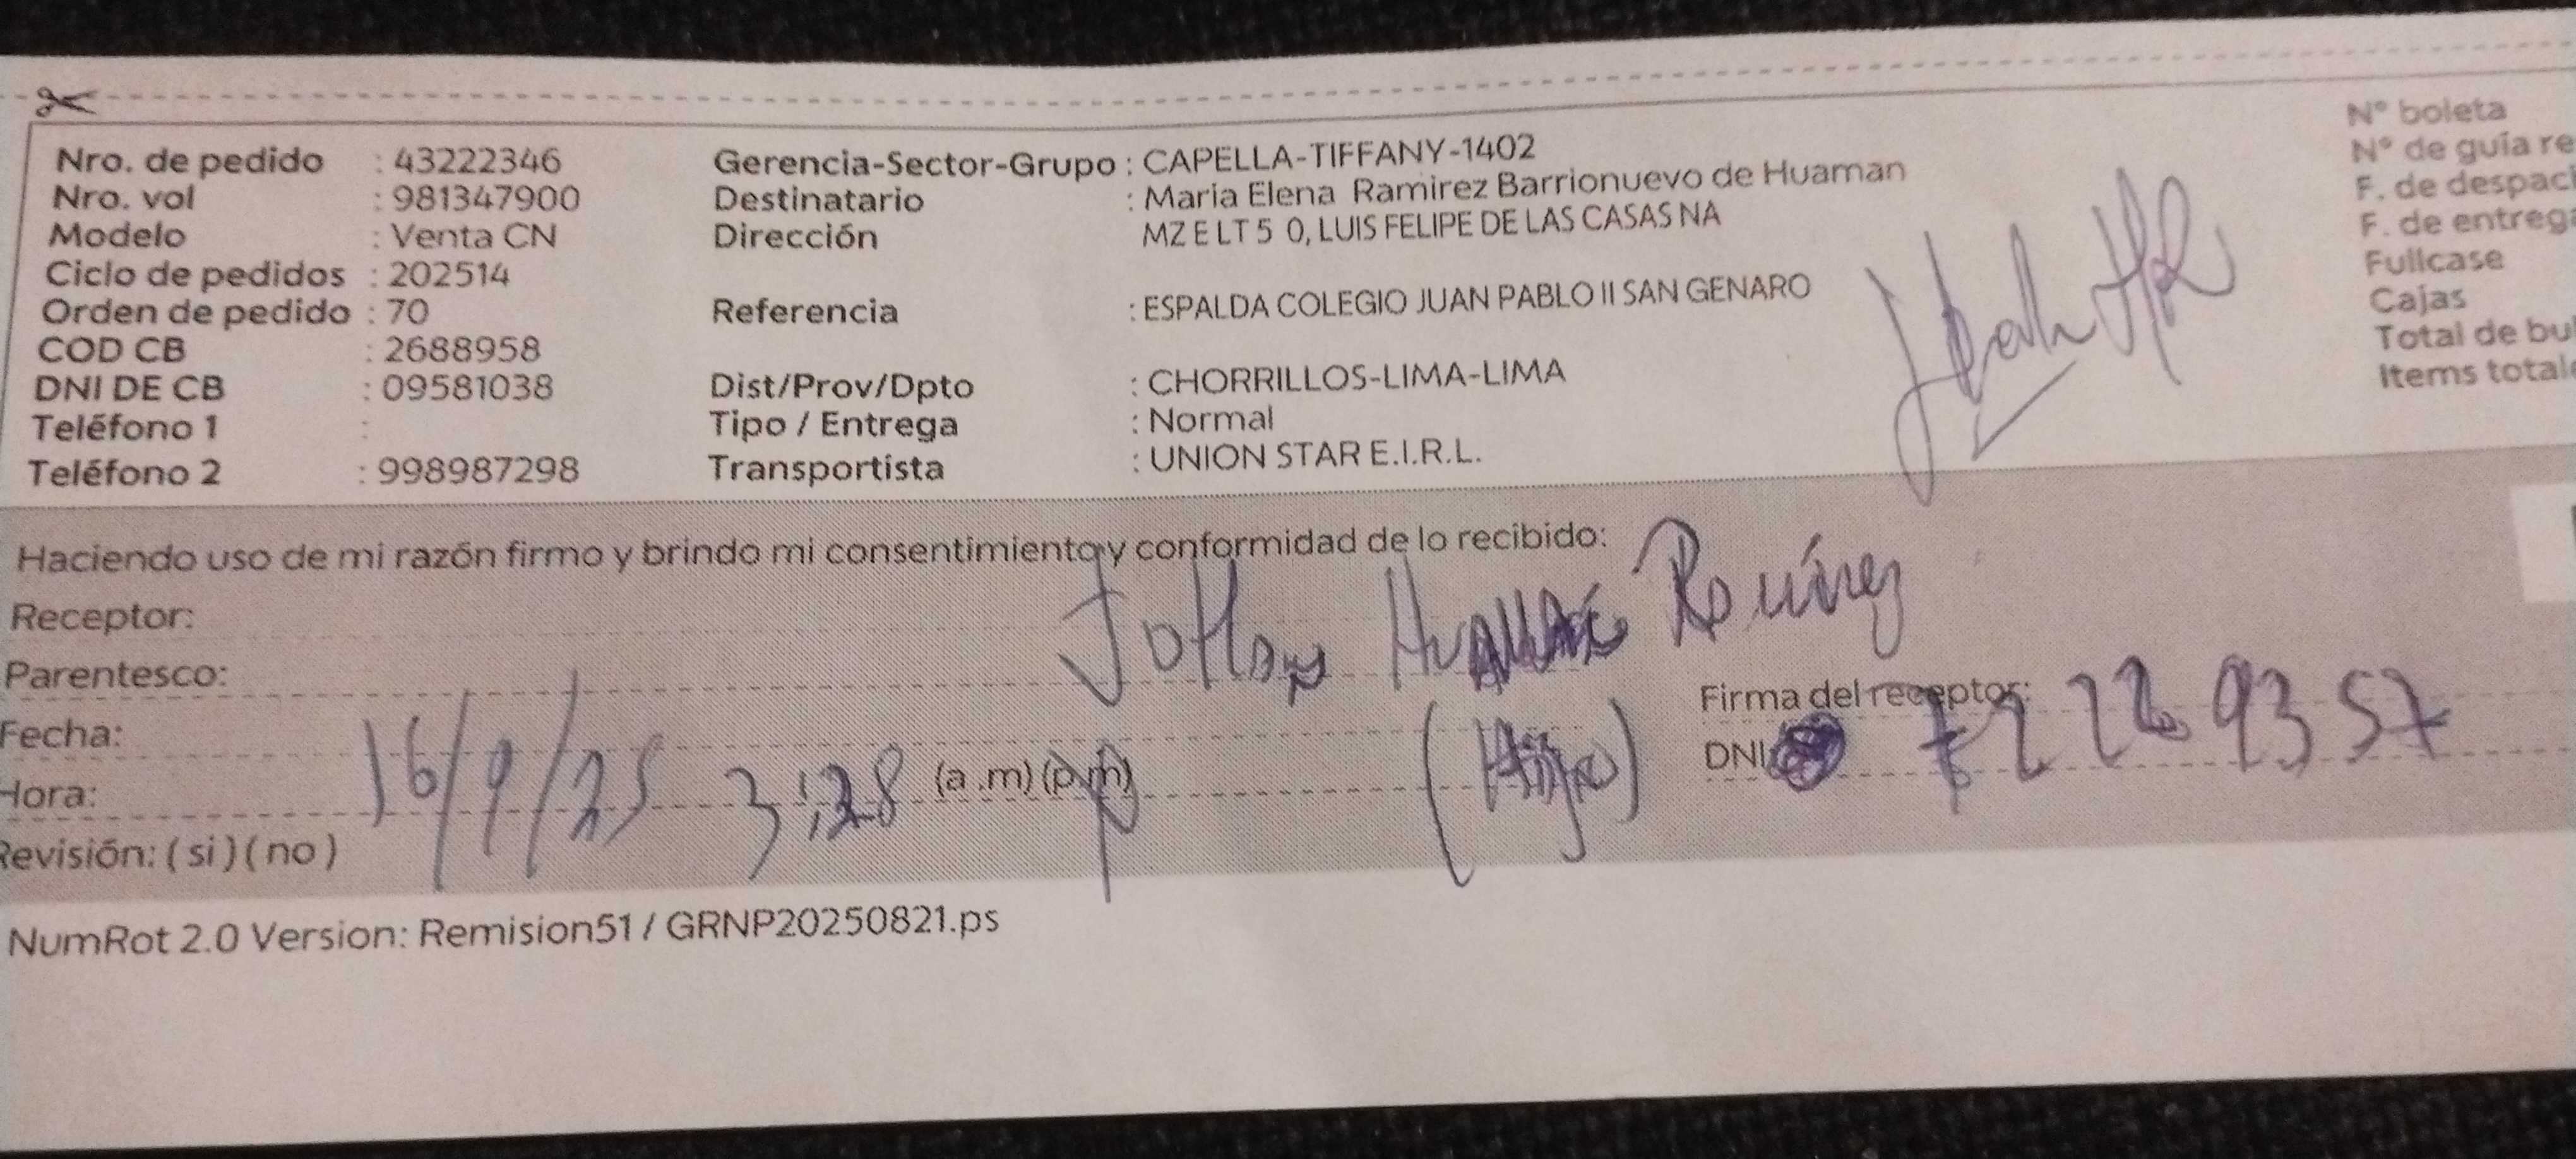 Nro. de pedido : 43222346
Nro. vol : 981347900
Modelo : Venta CN
Ciclo de pedidos : 202514
Orden de pedido : 70
COD CB : 2688958
DNI DE CB : 09581038
Teléfono 1 :
Teléfono 2 : 998987298
Gerencia-Sector-Grupo : CAPELLA-TIFFANY-1402
Destinatario : Maria Elena Ramirez Barrionuevo de Huaman
Dirección MZ E LT 5 0, LUIS FELIPE DE LAS CASAS NA
Referencia : ESPALDA COLEGIO JUAN PABLO II SAN GENARO
Dist/Prov/Dpto : CHORRILLOS-LIMA-LIMA
Tipo / Entrega : Normal
Transportista : UNION STAR E.I.R.L.
N° boleta
N° de guía re
F. de despac
F. de entreg
Fullcase
Cajas
Total de bu
Items total
Haciendo uso de mi razón firmo y brindo mi consentimiento y conformidad de lo recibido:
Receptor: Ramírez
Parentesco: (Hijo)
Firma del receptor:
Fecha: 16/9/25
DNI
Hora: 3:28 (a.m) (p.m)
Revisión: ( si ) ( no )
NumRot 2.0 Version: Remision51 / GRNP20250821.ps